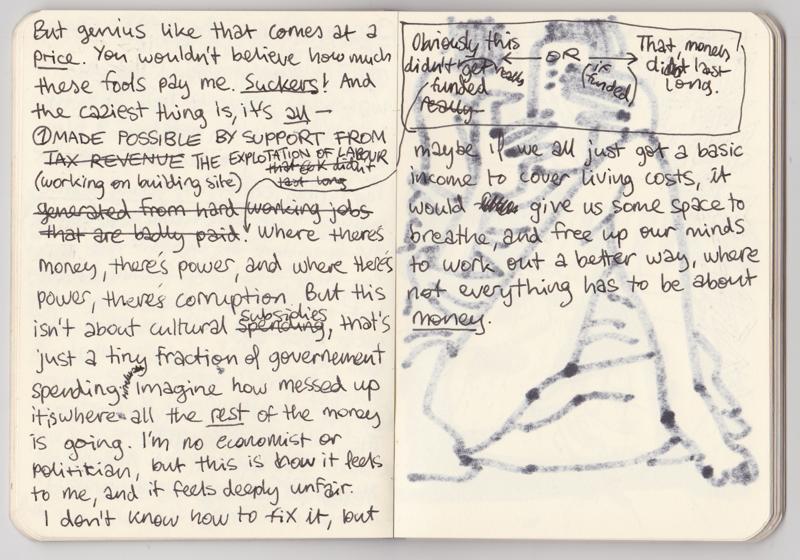 But genius like that comes at a
price. You wouldn't believe how much
these fools pay me. Suckers! And
the caziest thing is, it's all —
① MADE POSSIBLE BY SUPPORT FROM
TAX REVENUE THE EXPLOTATION OF LABOUR
that didn't
(working on building site) last long
generated from hard working jobs
that are badly paid. Where there's
money, there's power, and where there's
power, there's corruption. But this
subsidies
isn't about cultural spending, that's
just a tiny fraction of governement
spending, imagine how messed up
it is where all the rest of the money
is going. I'm no economist or
politikian, but this is how it feels
to me, and it feels deeply unfair.
I don't know how to fix it, but
Obviously this ← OR → That, money
didn't get really (is funded) didn't last
funded long.
really
maybe if we all just got a basic
income to cover living costs, it
would give us some space to
breathe, and free up our minds
to work out a better way, where
not everything has to be about
money.